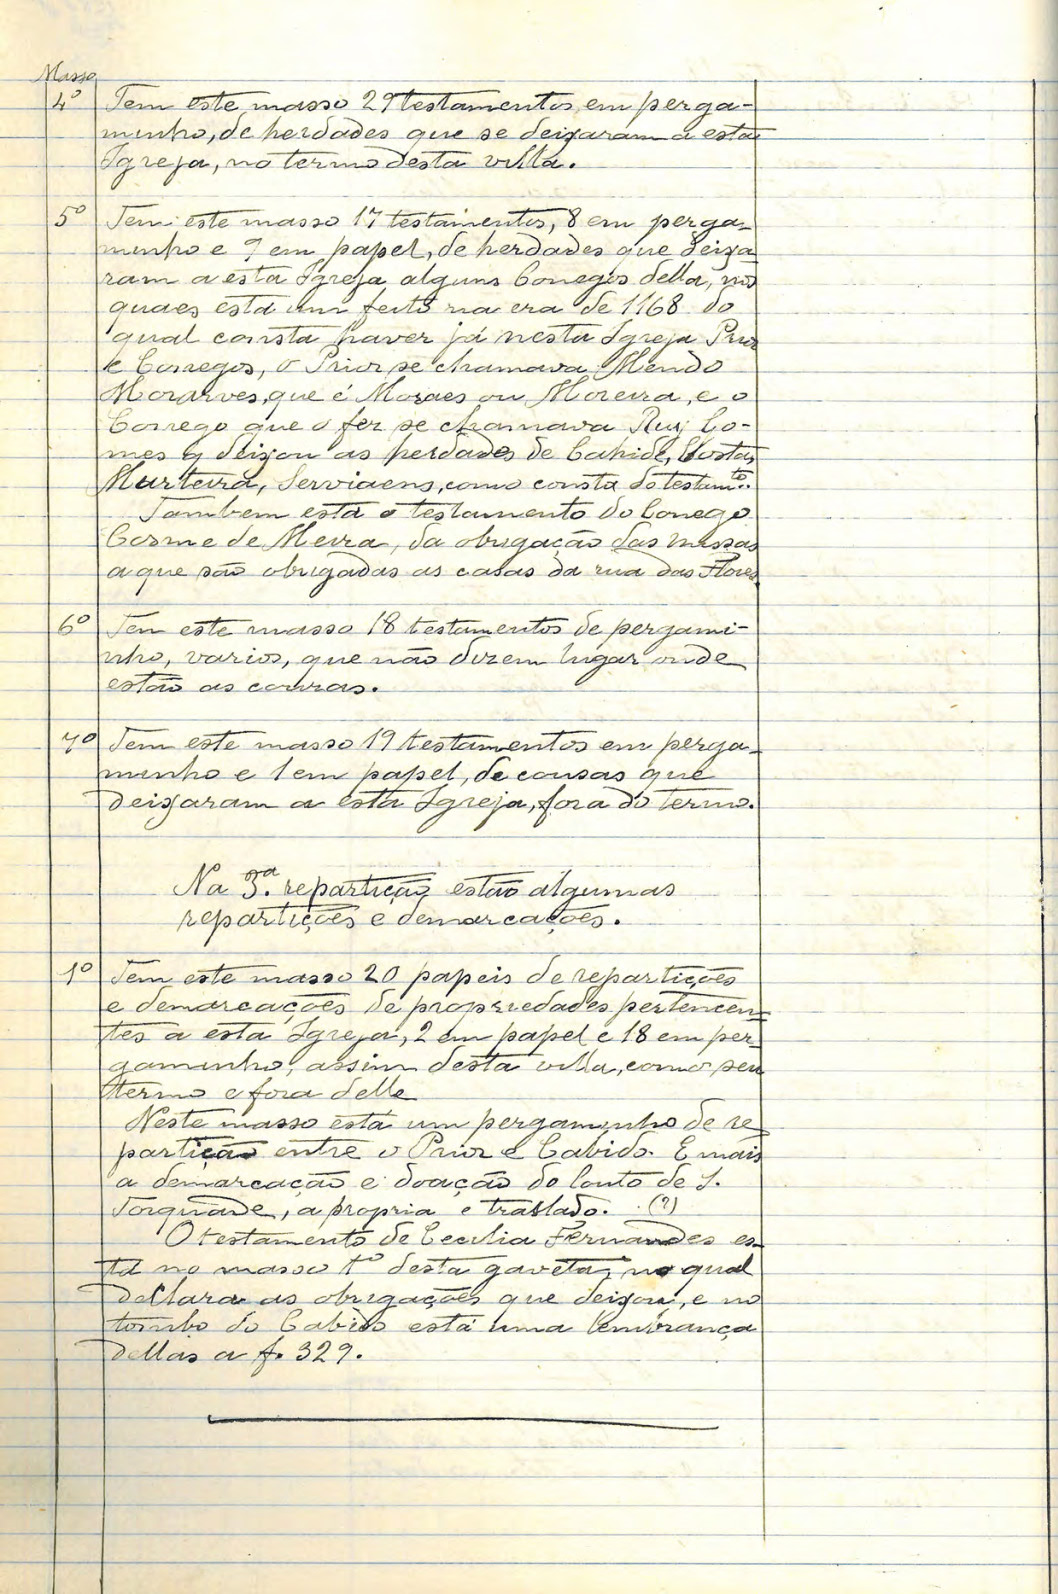 Masso
4º Tem este masso 29 testamentos, em perga-
minho, de herdades que se deixaram a esta
Igreja, no termo desta villa.
5º Tem este masso 17 testamentos, 8 em perga-
minho e 9 em papel, de herdades que deixa
ram a esta Igreja alguns Conegos della, nos
quaes está um feito na era de 1168 do
qual consta haver já nesta Igreja Prior
e Conegos, o Prior se chamava Mendo
que é Moraes ou Moreira, e o
Conego que o fez se chamava Ruy Go-
mes q deixou as herdades de Cahide,
Murteira, Serviaens, como consta do testamto.
Tambem está o testamento do Conego
Cosme de Meira, da obrigação das missas
a que são obrigadas as casas da rua das Flores
6º Tem este masso 18 testamentos de pergami-
nho, varios, que não dizem lugar onde
estão as couzas.
7º Tem este masso 19 testamentos em perga-
minho e 1 em papel, de cousas que
deixaram a esta Igreja, fora do termo.
Na 3.ª repartição estão algumas
repartições e demarcações.
1º Tem este masso 20 papeis de repartições
e demarcações de propriedades pertencen-
tes a esta Igreja, 2 em papel e 18 em per-
gaminho, assim desta villa, como seu
termo e fora delle
Neste masso está um pergaminho de re-
partição entre o Prior e Cabido. E mais
a demarcação e doação do Couto de S.
Torquade, a propria e traslado. (?)
O testamento de Cecilia Fernandes es-
tá no masso 1º desta gaveta, no qual
declara as obrigações que deixou, e no
tombo do Cabido está uma lembrança
dellas a f. 329.